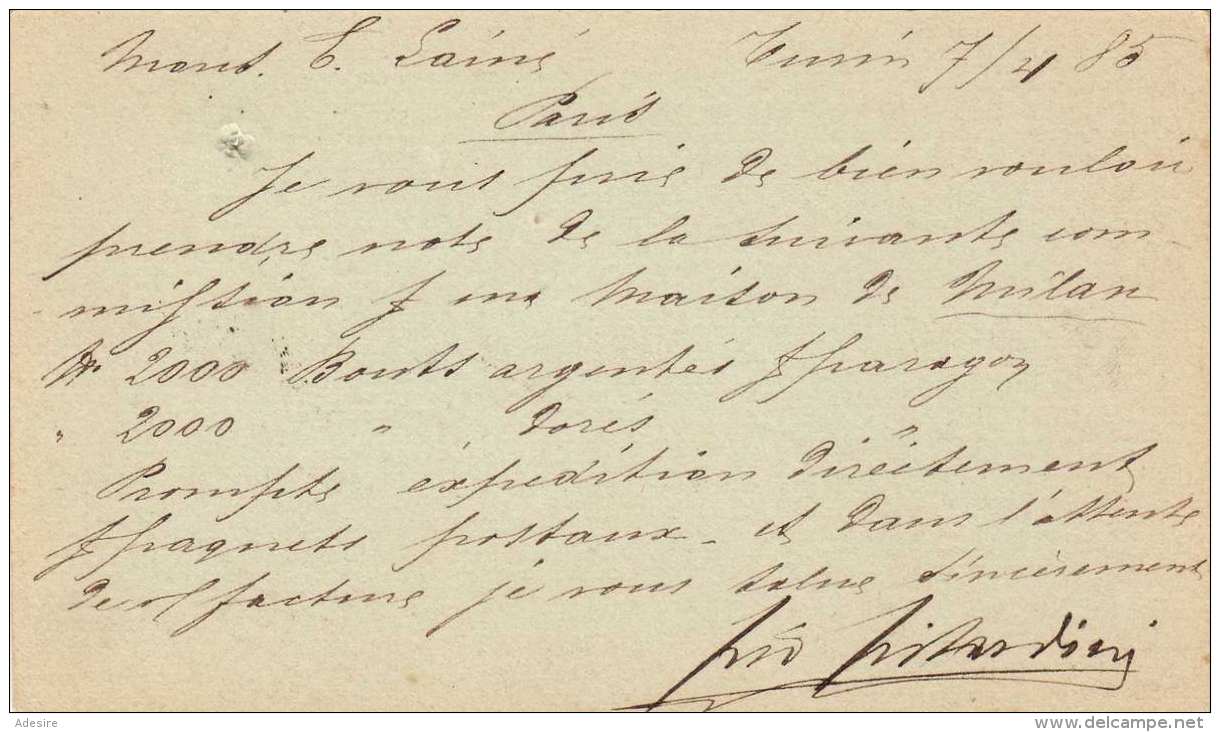 Mons. E. Lainé Turin 7/4 85
Paris
Je vous prie de bien vouloir
prendre note de la suivante com
mission p une Maison de Milan
N° 2000 Bouts argentés p paragon
" 2000 " dorés "
Prompte expédition directement
p paquets postaux _ et dans l'attente
de facture je vous salue sincèrement
Adesire
delcampe.net